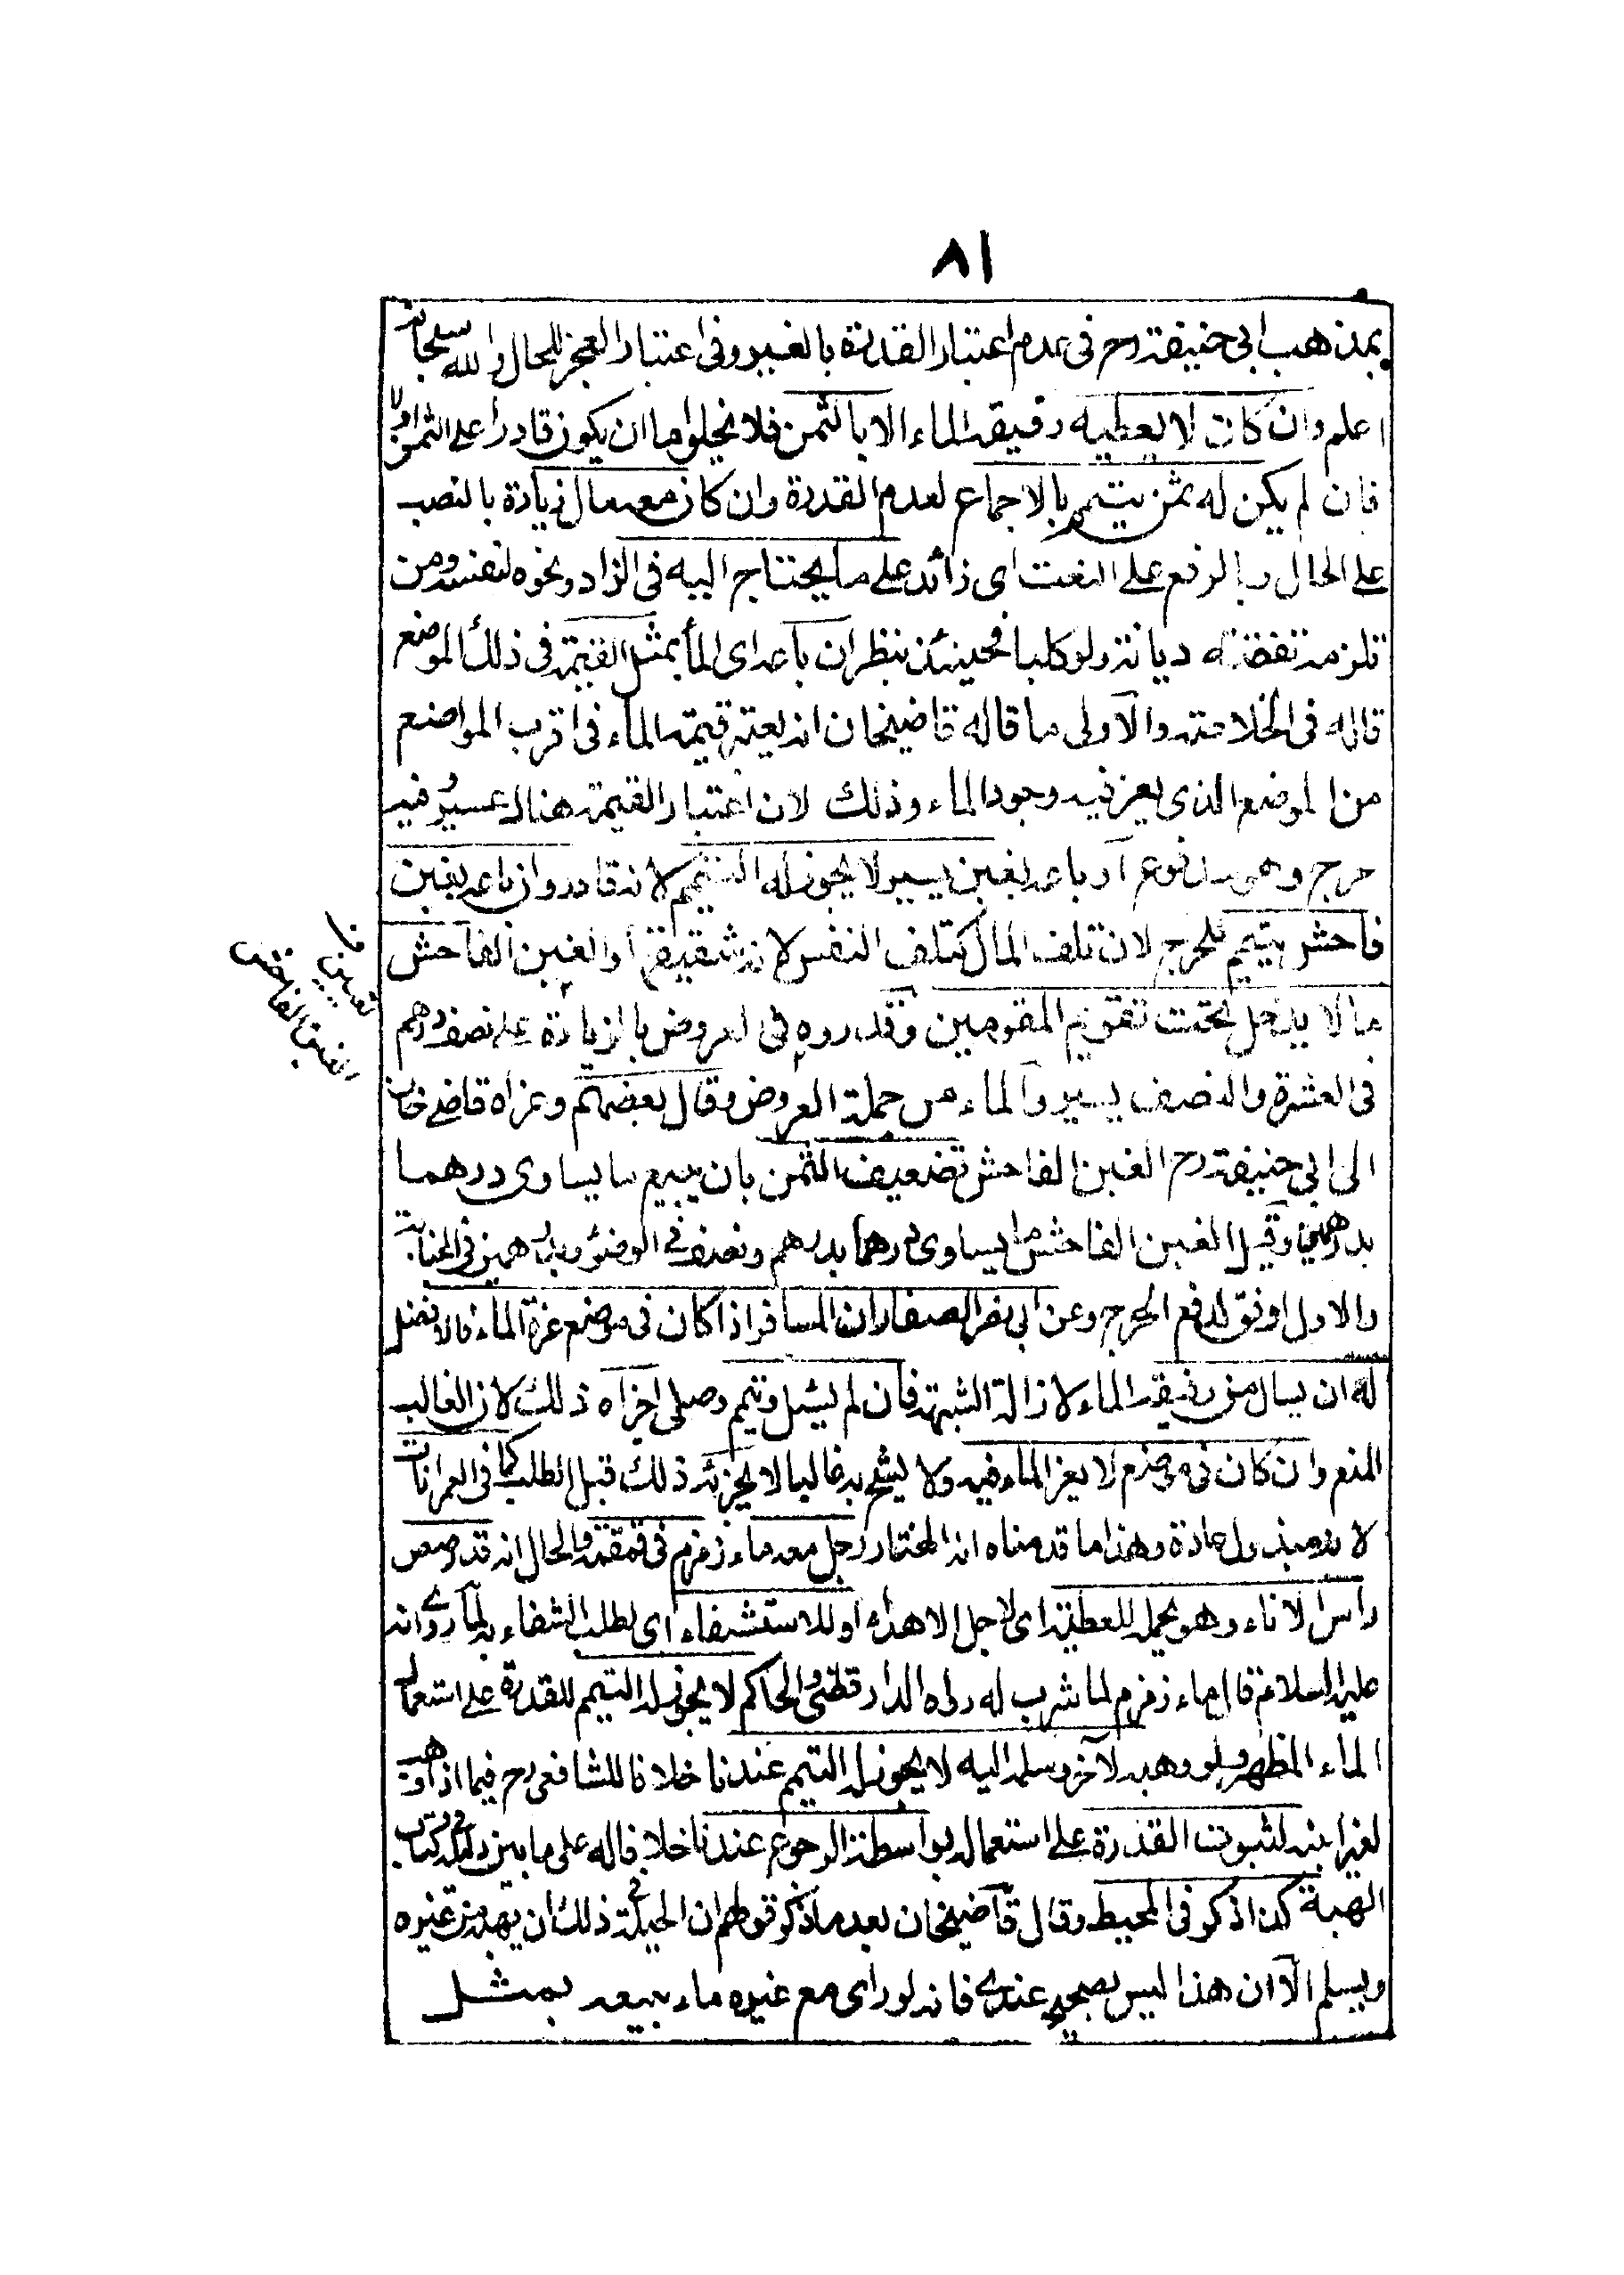 ٨١
بمذهب ابى حنيفة رح فى عدم اعتبار القدرة بالغير وفى اعتبار العجز للحال والله سبحانه
اعلم وان كان لا يعطيه رفيقه الماء الا بالثمن فلا يخلوا ما ان يكون قادرا على الثمن اولا
فان لم يكن له ثمن يتيمم بالاجماع لعدم القدرة وان كان معه مال زيادة بالنصب
على الحال وبالرفع على النعت اى زائد على ما يحتاج اليه فى الزاد ونحوه لنفسه ومن
تلزمه نفقته ديانة ولو كلبا فحينئذ ينظر ان باعه اى الماء بمثل القيمة فى ذلك الموضع
قاله فى الخلاصة والاولى ما قاله قاضيخان انه يعتبر قيمة الماء فى اقرب المواضع
من الموضع الذى يعز فيه وجود الماء وذلك لان اعتبار القيمة هناك عسير وفيه
حرج وهو مدفوع او باعه بغبن يسير لا يجوز له التيمم لانه قادر وان باعه بغبن
فاحش يتيمم للحرج لان تلف المال كتلف النفس لانه شقيقها والغبن الفاحش
ما لا يدخل تحت تقويم المقومين وقدروه فى العروض بالزيادة على نصف درهم
فى العشرة والنصف يسير والماء من جملة العروض وقال بعضهم وعزاه قاضى خان
الى ابى حنيفة رح الغبن الفاحش تضعيف الثمن بان يبيع ما يساوى درهما
بدرهمين وقيل الغبن الفاحش ما يساوى درهما بدرهم ونصف فى الوضوء وبدرهمين فى الجنابة
والاول اوفق لدفع الحرج وعن ابى نصر الصفار ان المسافر اذا كان فى موضع عزة الماء فالافضل
له ان يسال من رفيقه الماء لازالة الشبهة فان لم يسئل وتيمم وصلى اجزاه ذلك لان الغالب
المنع وان كان فى موضع لا يعز الماء فيه ولا يشح به غالبا لا يجزئه ذلك قبل الطلب كما فى العمرانات
لانه مبذول عادة وهذا ما قدمناه انه المختار رجل معه ماء زمزم فى قمقمة والحال انه قد رصص
راس الاناء وهو يحمله للعطية اى لاجل الاهداء او للاستشفاء اى لطلب الشفاء به لما روى انه
عليه السلام قال ماء زمزم لما شرب له رواه الدارقطنى والحاكم لا يجوز له التيمم للقدرة على استعمال
الماء المطهر ولو وهبه لآخر وسلمه اليه لا يجوز له التيمم عندنا خلافا للشافعى رح فيما اذا وهب
لغير ابنه لثبوت القدرة على استعماله بواسطة الرجوع عندنا خلافا له على ما بين ذلك فى كتاب
الهبة كذا ذكر فى المحيط وقال قاضيخان بعد ما ذكر قولهم ان الحيلة فى ذلك ان يهبه من غيره
ويسلم الا ان هذا ليس بصحيح عندى فانه لو راى مع غيره ماء يبيعه بمثل
الغبن الفاحش